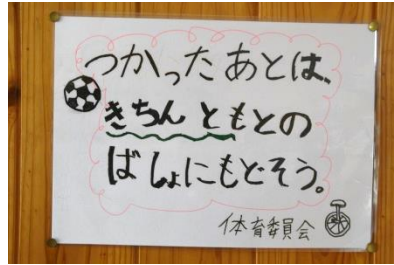 つかったあとは、
きちんともとの
ばしょにもどそう。
体育委員会